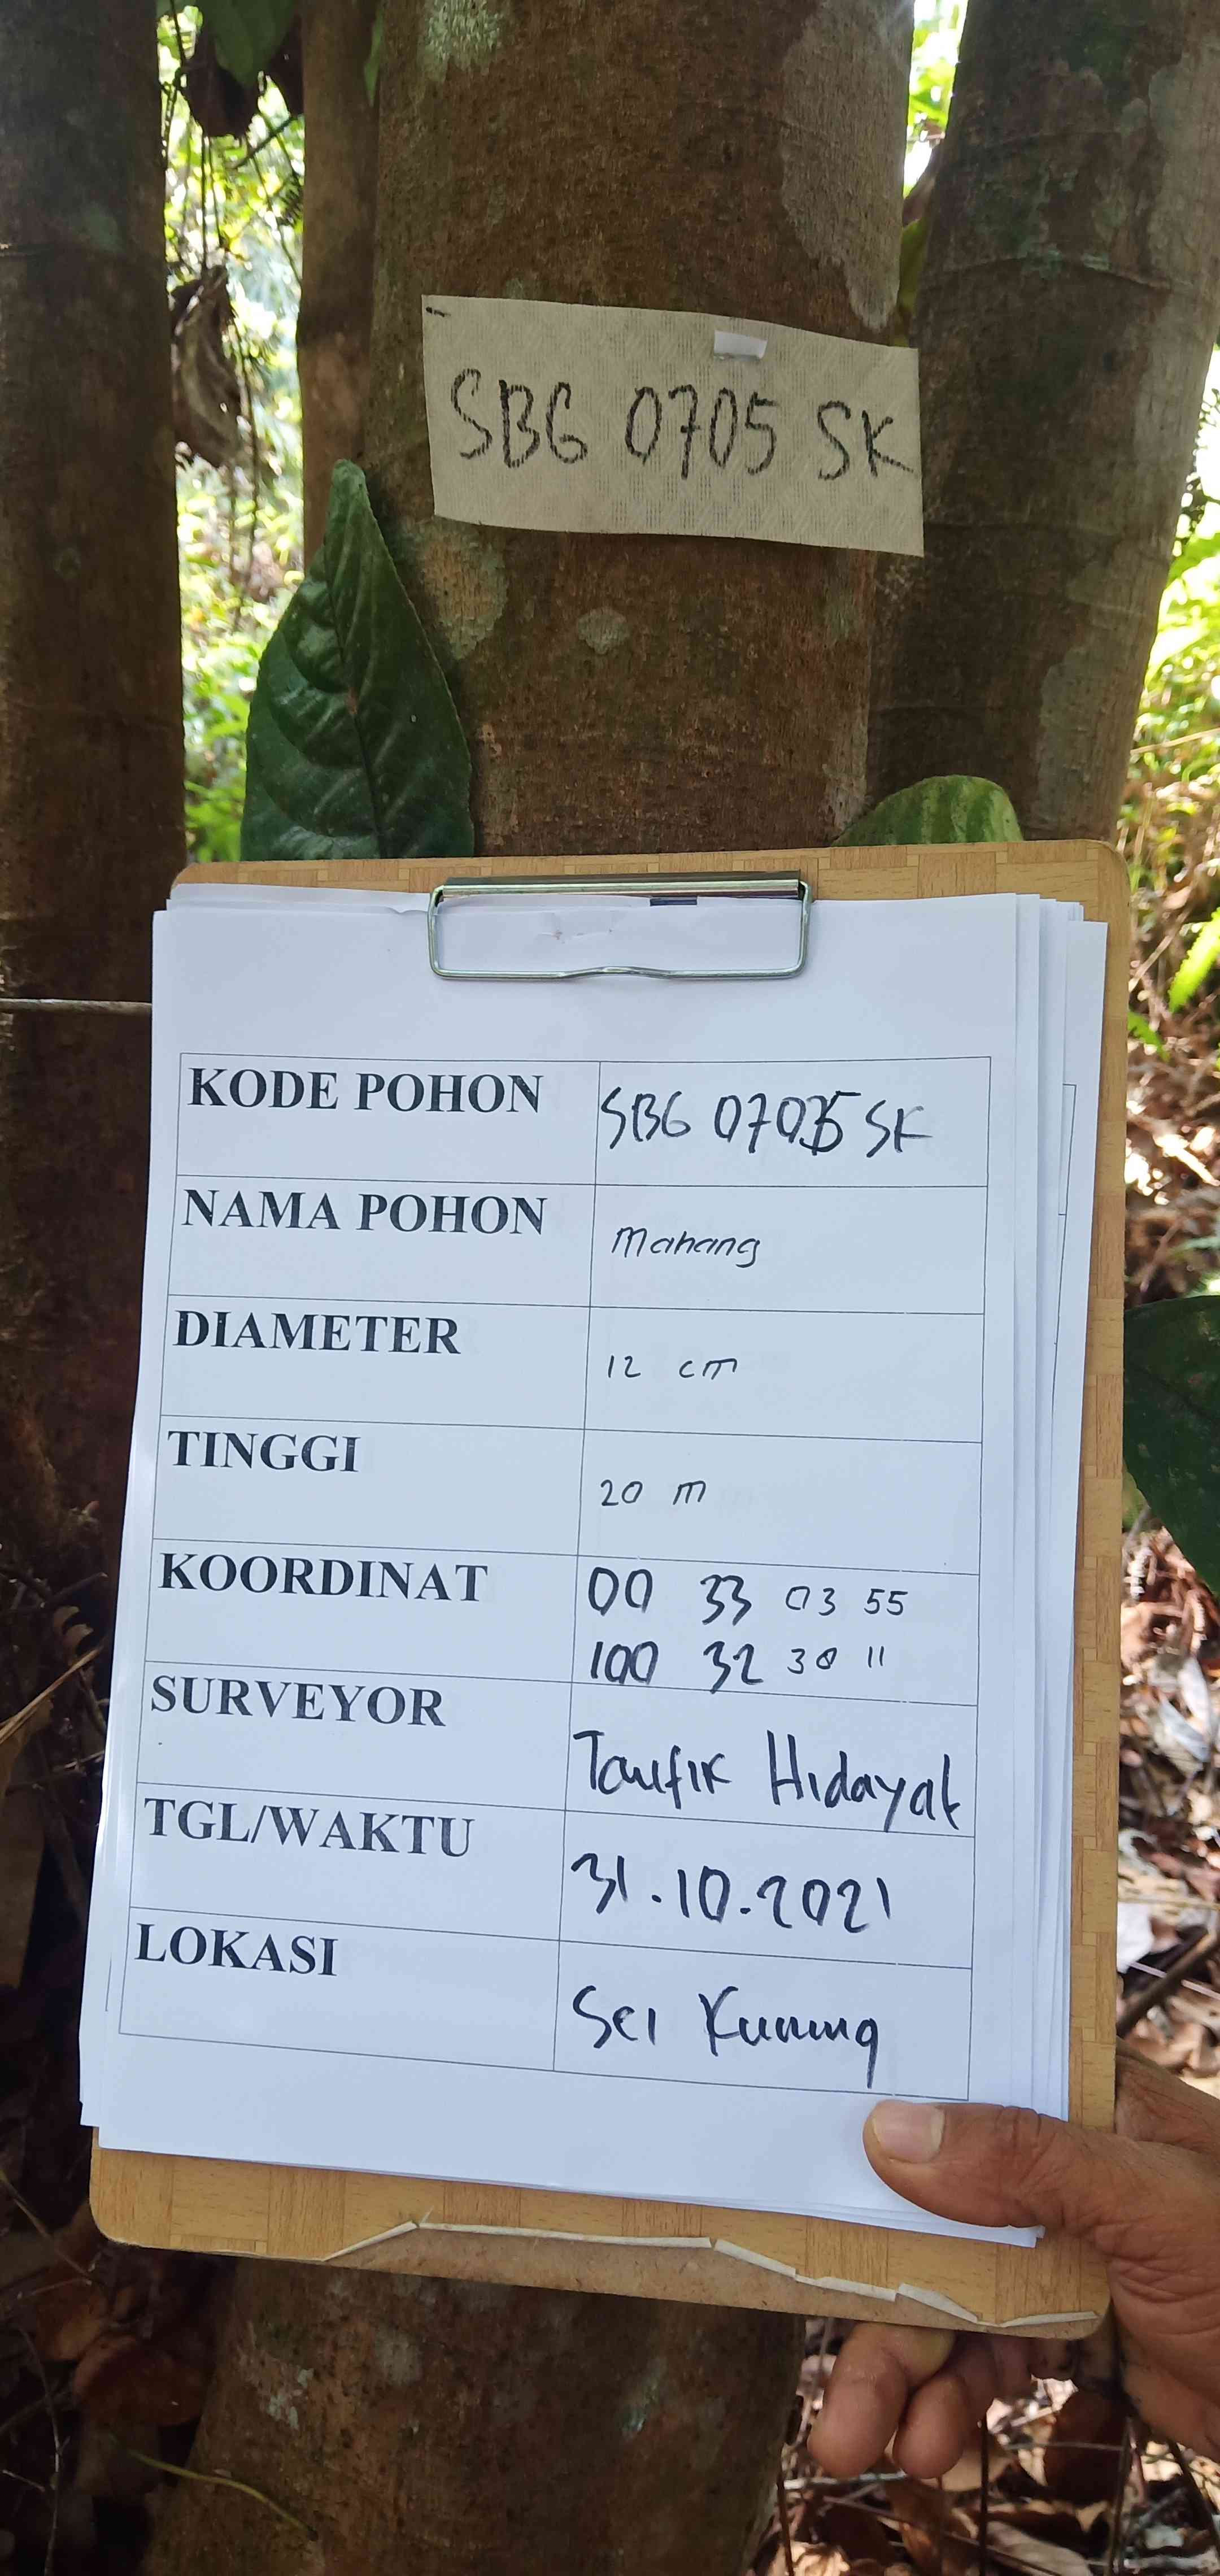 SBG 0705 SK
KODE POHON SBG 0705 SK
NAMA POHON Mahang
DIAMETER 12 cm
TINGGI 20 m
KOORDINAT 00 33 03 55
100 32 30 11
SURVEYOR Taufik Hidayat
TGL/WAKTU 31.10.2021
LOKASI Sei Kuning